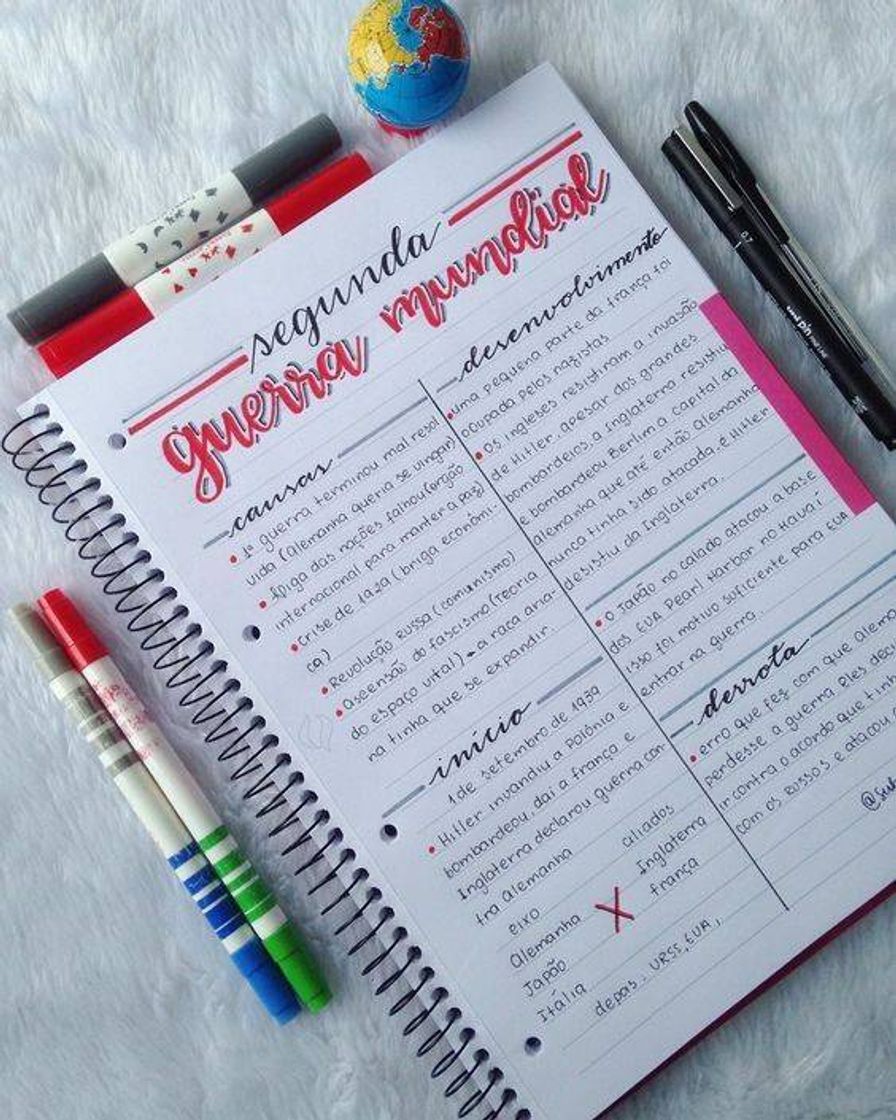 segunda
guerra mundial
causas
• 1ª guerra terminou mal resol
vida (Alemanha queria se vingar)
• Aliga das nações falhou (orgão
internacional para manter a paz)
• Crise de 1929 (briga econômi-
ca)
• Revolução Russa (comunismo)
• Ascensão do fascismo (Teoria
do espaço vital) → a raça aria-
na tinha que se expandir.
início
1 de setembro de 1939
• Hitler invandiu a Polônia e
bombardeou, daí a frança e
Inglaterra declarou guerra con-
tra Alemanha
eixo aliados
Alemanha X Inglaterra
Japão frança
Itália
depas. URSS, EUA,
desenvolvimento
• uma pequena parte da frança foi
ocupada pelos nazistas
• Os ingleses resistiram a invasão
de Hitler, apesar dos grandes
bombardeios, a Inglaterra resistiu
e bombardeou Berlim a capital da
Alemanha que até então Alemanha
nunca tinha sido atacada, e Hitler
desistiu da Inglaterra.
• O Japão no calado atacou a base
dos EUA Pearl Harbor no Havaí
isso foi motivo suficiente para EUA
entrar na guerra.
derrota
• erro que fez com que Alem
perdesse a guerra Eles deci
ir contra o acordo que tinh
com os Russos e atacou
uni pin FINE LINE
0.7